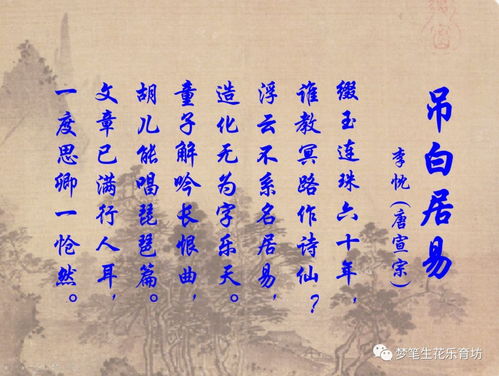 吊白居易
李忱(唐宣宗)
缀玉连珠六十年，
谁教冥路作诗仙？
浮云不系名居易，
造化无为字乐天。
童子解吟长恨曲，
胡儿能唱琵琶篇。
文章已满行人耳，
一度思卿一怆然。
梦笔生花乐育坊